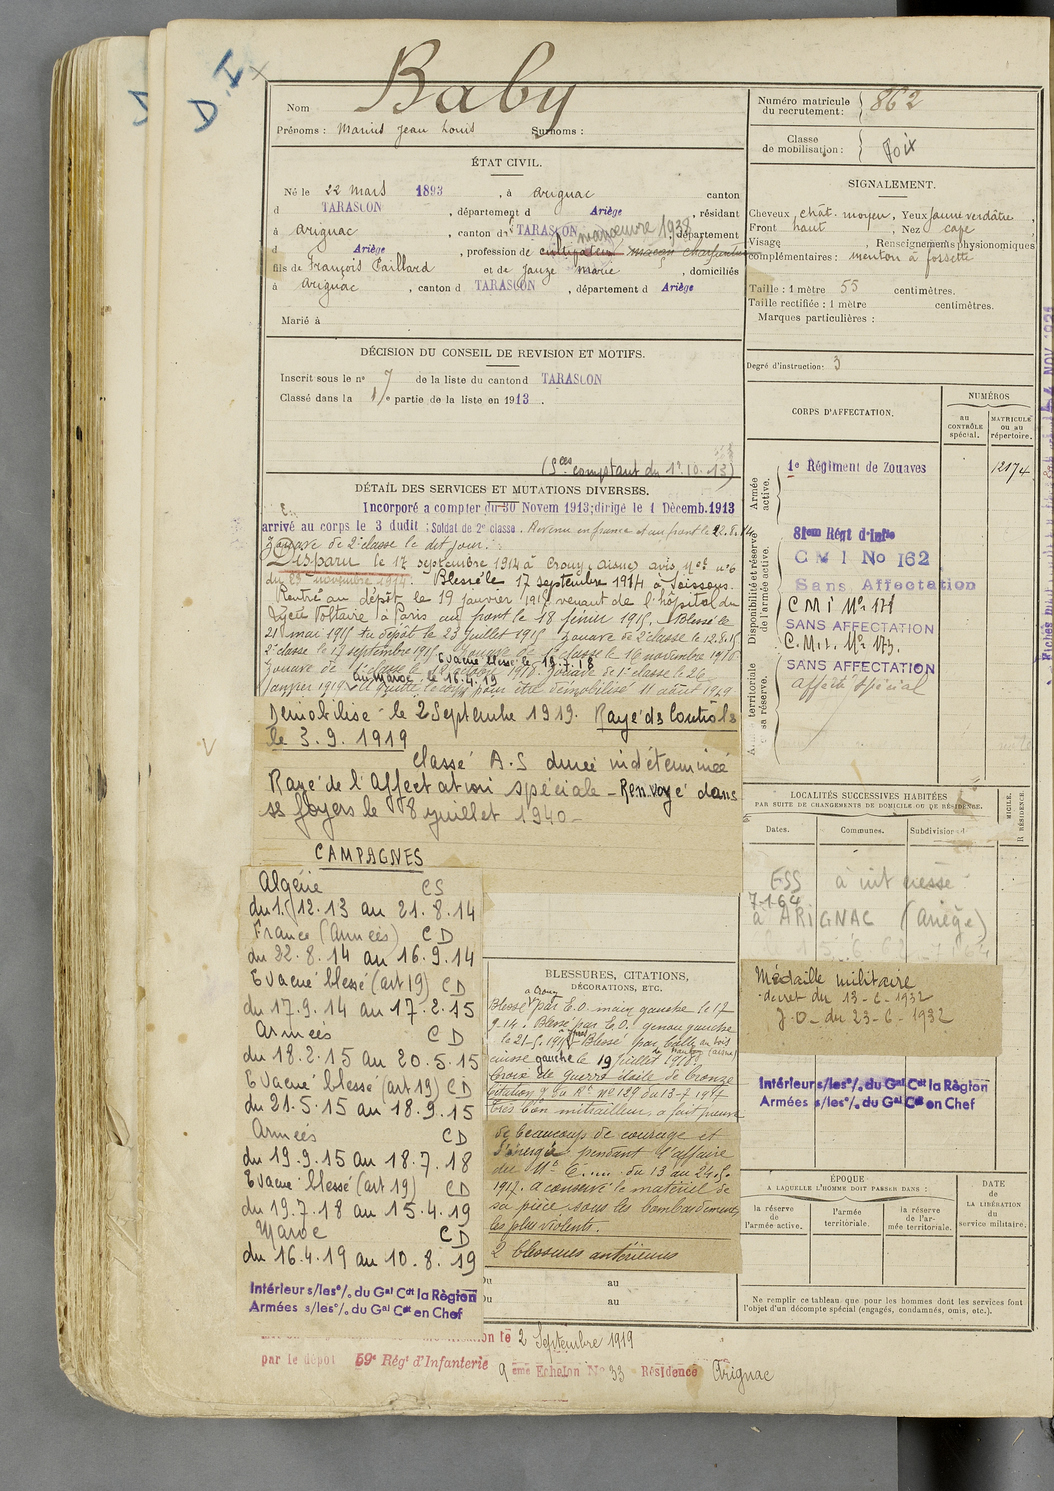 D I
Nom Baby
Prénoms : Marius Jean Louis Surnoms :
ÉTAT CIVIL.
Né le 22 mars 1893, à Arignac canton
d TARASCON, département d Ariège, résidant
à Arignac, canton d TARASCON, département
manœuvre 1938
d Ariège, profession de cultivateur maçon charpentier
fils de François Paillard et de Jauze Marie, domiciliés
à Arignac, canton d TARASCON, département d Ariège
Marié à
DÉCISION DU CONSEIL DE REVISION ET MOTIFS.
Inscrit sous le n° 7 de la liste du canton d TARASCON
Classé dans la 1re partie de la liste en 1913.
(Sces comptant du 1er.10.13)
DÉTAIL DES SERVICES ET MUTATIONS DIVERSES.
Incorporé a compter du 30 Novem 1913; dirigé le 1 Décemb. 1913
arrivé au corps le 3 dudit : Soldat de 2e classe. Revenu en france et au front le 22.8.14
Zouave de 2e classe le dit jour.
Disparu le 17 septembre 1914 à Crouy (Aisne) avis Mel n° 6
du 23 novembre 1914. Blessé le 17 septembre 1914 à Soissons.
Rentré au dépôt le 19 janvier 1915 venant de l'hôpital du
Lycée Voltaire à Paris au front le 18 février 1915. Blessé le
21 mai 1915 au dépôt le 23 juillet 1915 Zouave de 2e classe le 12.8.15
2e classe le 17 septembre 1915 Zouave de 1e classe le 16 novembre 1916
Evacué blessé le 19.7.18
Zouave de 2e classe le 18 octobre 1918. Zouave de 1e classe le 26
au Maroc le 16.4.19
Janvier 1919. A quitté le corps pour être démobilisé 11 août 1919
Démobilisé le 2 Septembre 1919. Rayé des Contrôles
le 3.9.1919
Classé A.S durée indéterminée
Rayé de l'Affectation spéciale - Renvoyé dans
ses foyers le 8 juillet 1940 -
CAMPAGNES
Algérie CS
du 1.12.13 au 21.8.14
France (Armées) CD
du 22.8.14 au 16.9.14
Evacué blessé (art 19) CD
du 17.9.14 au 17.2.15
Armées CD
du 18.2.15 au 20.5.15
Evacué blessé (art 19) CD
du 21.5.15 au 18.9.15
Armées CD
du 19.9.15 au 18.7.18
Evacué blessé (art 19) CD
du 19.7.18 au 15.4.19
Maroc CD
du 16.4.19 au 10.8.19
Intérieur s/les°/. du Gal Cdt la Règion
Armées s/les°/. du Gal Cdt en Chef
BLESSURES, CITATIONS,
DÉCORATIONS, ETC.
à Crouy
Blessé par E.O. main gauche le 17
9.14. Blessé par E.O. genou gauche
le 21-5-1915 Blessé par balle au bois
cuisse gauche le 19 juillet 1918.
Croix de guerre étoile de bronze
citation O. du Rt n° 129 du 13-7-1917
très bon mitrailleur, a fait preuve
de beaucoup de courage et
d'énergie pendant l'affaire
du Mt C.... du 13 au 24.5.
1917. A conservé le matériel de
sa pièce sous les bombardements
les plus violents.
2 blessures antérieures
Du au
Du au
on le 2 Septembre 1919
par le dépot 59e Régt d'Infanterie
9 eme Echelon N° 33 - Résidence Arignac
Numéro matricule
du recrutement : 862
Classe
de mobilisation : Foix
SIGNALEMENT.
Cheveux chât. moyen, Yeux jaune verdâtre,
Front haut, Nez cave
Visage, Renseignements physionomiques
complémentaires : menton à fossette
Taille : 1 mètre 55 centimètres.
Taille rectifiée : 1 mètre centimètres.
Marques particulières :
Degré d'instruction : 3
CORPS D'AFFECTATION.
NUMÉROS
au
CONTRÔLE
spécial.
MATRICULE
ou au
répertoire.
Armée
active.
1e Régiment de Zouaves 12174
Disponibilité et réserve
de l'armée active.
81em Régt d'Infie
C M I No 162
Sans Affectation
C M i N° 171
SANS AFFECTATION
C.M.i. N° 173.
SANS AFFECTATION
affecté spécial
territoriale
sa réserve.
LOCALITÉS SUCCESSIVES HABITÉES
PAR SUITE DE CHANGEMENTS DE DOMICILE OU DE RÉSIDENCE.
Dates. Communes. Subdivision
ESS à intéressé
7-1-64
à ARIGNAC (Ariège)
Médaille militaire
décret du 13-6-1932
J.O- du 23-6-1932
Intérieur s/les°/. du Gal Cdt la Règion
Armées s/les°/. du Gal Cdt en Chef
ÉPOQUE
A LAQUELLE L'HOMME DOIT PASSER DANS :
la réserve
de
l'armée active.
l'armée
territoriale.
la réserve
de l'ar-
mée territoriale.
DATE
de
LA LIBÉRATION
du
service militaire.
Ne remplir ce tableau que pour les hommes dont les services font
l'objet d'un décompte spécial (engagés, condamnés, omis, etc.).